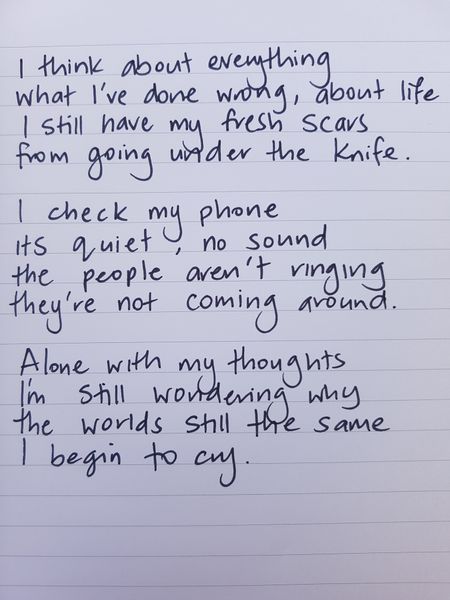 I think about everything
what I've done wrong, about life
I still have my fresh scars
from going under the knife.
I check my phone
its quiet, no sound
the people aren't ringing
they're not coming around.
Alone with my thoughts
I'm still wondering why
the worlds still the same
I begin to cry.